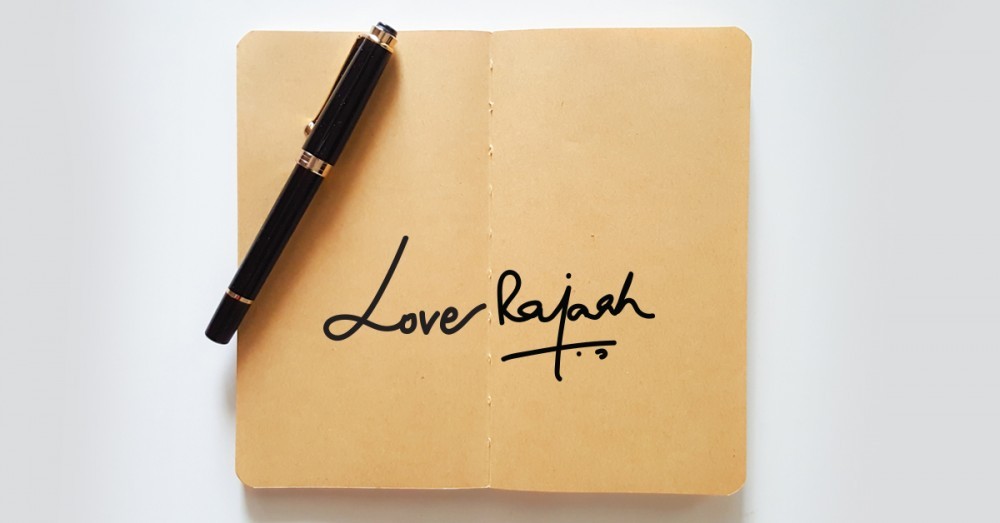 Love Rajash